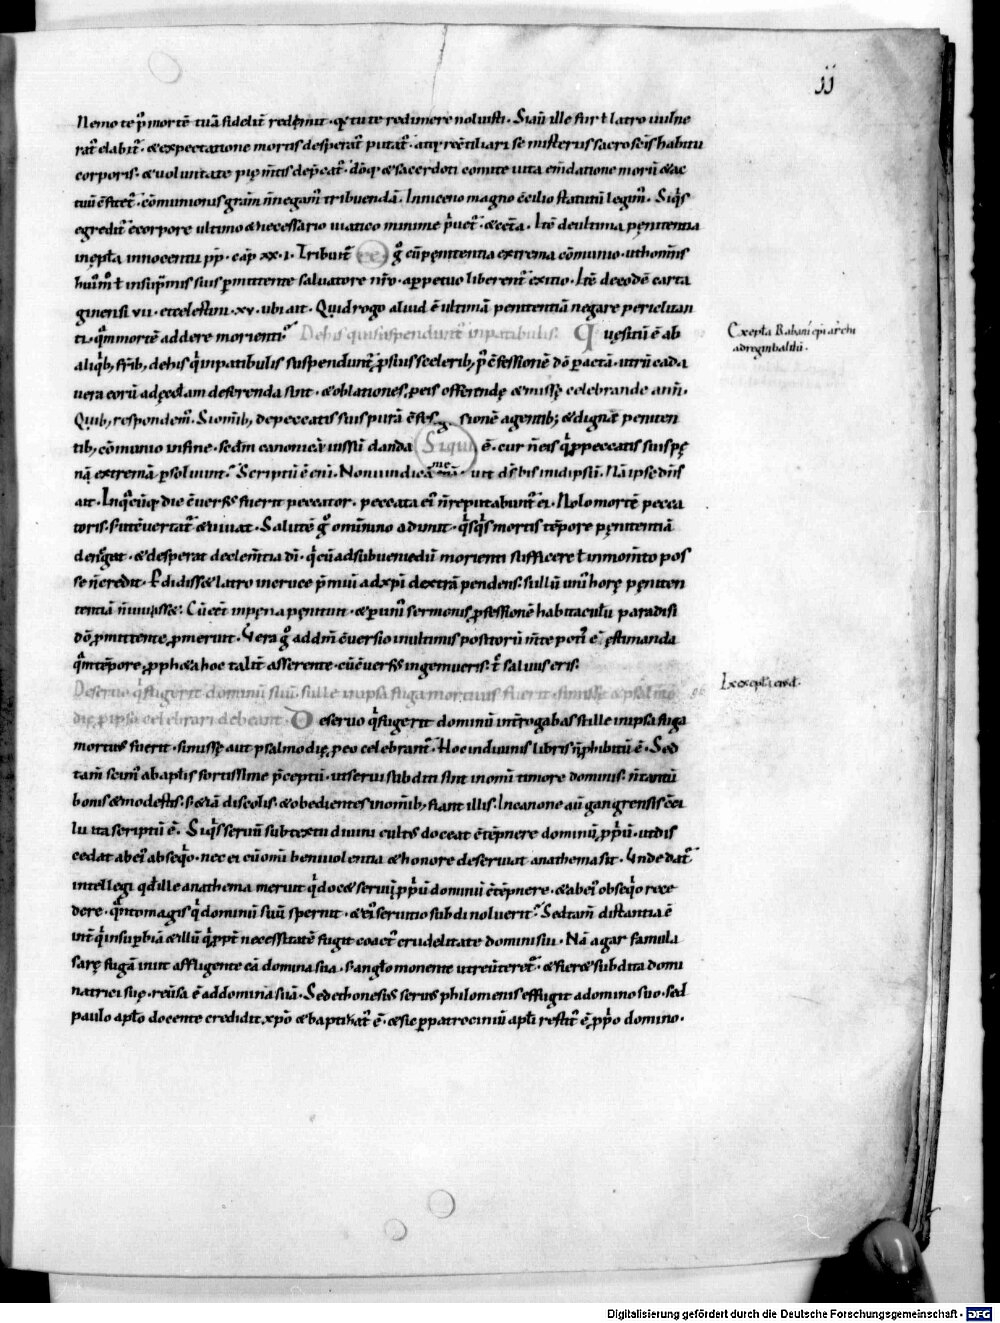 ii
Nemo te p̄ mortē tuā fidelit̄ redimit · q̄ tu te redimere noluisti · Siaū ille fur ł latro uulne
rat̄ elabit̄ · & expectatione mortis desperat̄ putat̄ · atq; recōciliari se misteriis sacrosc̄is habitu
corporis · & uoluntate pię mētis dep̄cat̄ · dō q; & sacerdoti comite uita em̄datione morū & ac
tuū
cōmunionis gratiā n̄ negam̄ tribuendā · In niceno magno cōcilio statutū legim̄ · Siq̄s
egredit̄ e corpore ultimo & necessario uiatico minime p̄uet̄ · & cet̄a · Itē de ultima pęnitentia
innocentii pp̄ · cap̄ xx · i · Tribuit̄ g̊ cū pęnitentia extrema cōmunio · ut homines
hui᷒modi ł in sup̄mis suis p̄mittente saluatore nr̄o · a perpetuo liberent̄ exitio · Itē de eodē carta
ginensi vii · et celestini · xv · ubi ait · Quid rogo aliud ē ultimā penitentiā negare periclitan
ti · q̄m mortē addere morienti · De his qui suspendunt̄ in patibulis · Quęsitū ē ab
Excepta Rabani ep̄i archi
ad reginbaldū ·
aliq̄b; fr̄ib; de his q̄ in patibulis suspendunt̄ p suis scelerib; p̄ cōfessionē dō pactā · utrū cada
uera eorū ad ęcclam deferenda sint · & oblationes p eis offerendę & missę celebrandę ann̄ ·
Quib; respondem̄ · Si omib; de peccatis suis purā cōfessionē agentib; & dignā peniten
tib; cōmunio in fine · sedm̄ canonicā iussū danda ē · cur n̄ eis q̄ p peccatis suis pę
nā extremā psoluunt · Scriptū ē eni · Non iudicat · ut dn̄s bis in id ipsū · Nā ipse dn̄s
ait · In q̄cūq; die cōuersus fuerit peccator · peccata ei᷒ n̄ reputabunt̄ ei · Nolo mortē pecca
toris · s; ut cōuertat̄ & uiuat · Salutē g̊ omino adimit · q̄sq̄s mortis tēpore pęnitentiā
denegat · & desperat de clem̄tia dī · q̄ eū ad subueniedū morienti sufficere ł in momēto pos
se n̄ credit · Pdidiss& latro in cruce p̄miū ad xp̄i dextrā pendens · si illū uni᷒ horę pęniten
tentiā n̄ iuuiss& · Cū eēt in pęna pęnituit · & p uni᷒ sermonis pfessionē habitaculū paradisi
dō pmittente pmeruit · Uera g̊ ad dm̄ cōuersio in ultimis positorū mēte poti᷒ ē ęstimanda
q̄m tēpore · ppheta hoc talit̄ asserente · cū cōuersus ingemueris · t̄ saluus eris ·
De seruo q̄ fugerit dominū suū · si ille in ipsa fuga mortuus fuerit · si missę & psalmo
Ex excepta eiusd ·
dię p ipso celebrari debeant · De seruo q̄ fugerit dominū int̄rogabas si ille in ipsa fuga
mortuus fuerit · si missę aut psalmodię p eo celebrant̄ · Hoc in diuinis libris n̄ phibitū ē · Sed
tam̄ scim̄ ab aplīs fortissime p̄ceptū · ut serui subditi sint in om̄i timore dominis · n̄ tantū
bonis & modestis · s; & iā discolis · & obedientes in omib; fiant illis · In canone aū gangrensis cōci
lii ita scriptū ē · Siq̄s seruū sub textu diuini cultus doceat cōtēpnere dominū ppriū · ut dis
cedat ab ei᷒ obseq̄o · nec ei cū om̄i beniuolentia & honore deseruiat anathema sit · Unde dat̄
intellegi qd̄ ille anathema meruit q̄ doc& seruū ppriū dominū cōtēpnere · & ab ei᷒ obseq̄o rece
dere · q̄nto magis q̄ dominū suū spernit · & ei᷒ seruitio subdi noluerit · Sed tam̄ distantia ē
int̄ q̄ in supbiā & illū q̄ ppt̄ necessitatē fugit coact᷒ crudelitate domini sui · Nā agar famula
sarę fugā iniit affligente eā domina sua · s; anglo monente ut reuteret̄ · & fier& subdita domi
natrici suę · reūsa ē ad dominā suā · Sed & honesim᷒ seruus philomenis effugit a domino suo · sed
paulo aplo docente credidit xp̄o & baptizat᷒ ē · & sic p patrociniū aplī restitut᷒ ē pprio domino ·
Digitalisierung gefördert durch die Deutsche Forschungsgemeinschaft - DFG